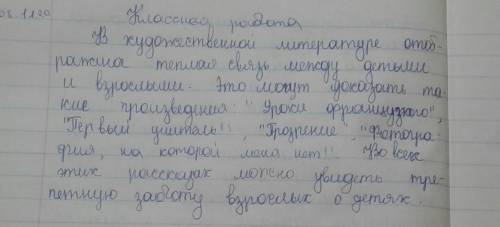 08.11.20
Классная работа
В художественной литературе отоб-
ражена теплая связь между детьми
и взрослыми. Это могут доказать та-
кие произведения: "Уроки французкого",
"Первый учитель", "Прозрение", "Фотогра-
фия, на которой меня нет!". Во всех
этих рассказах можно увидеть тре-
петную заботу взрослых о детях.